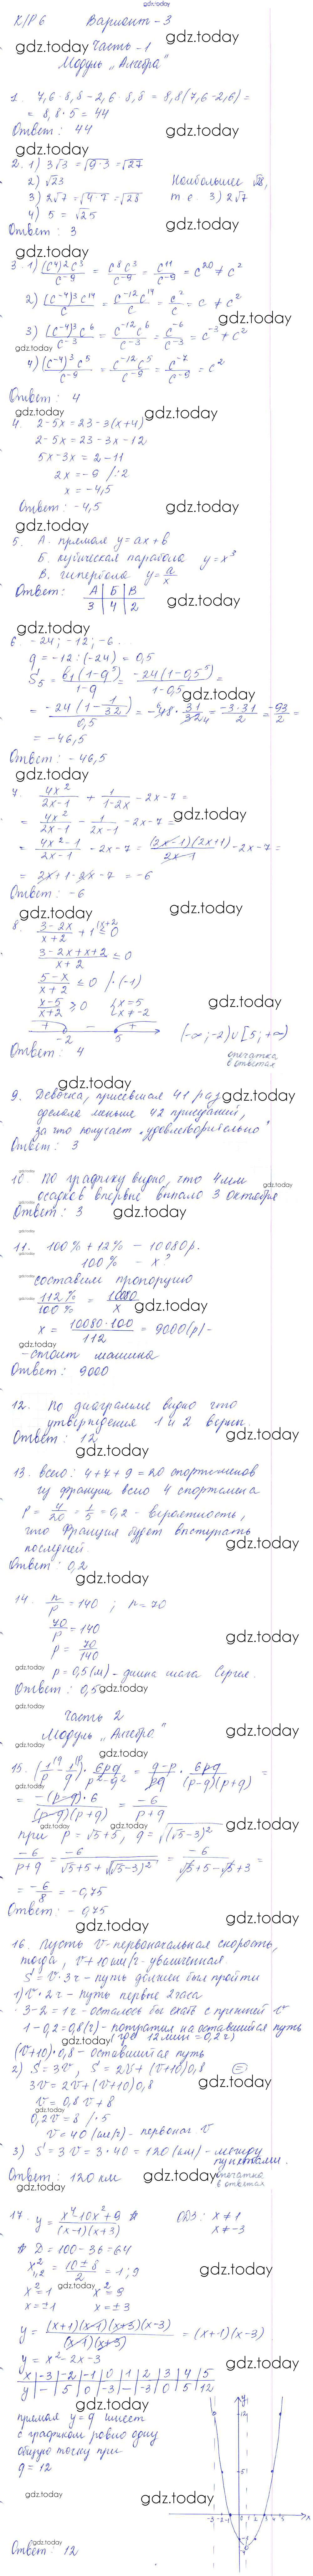 gdz.today
К/Р 6 Вариант - 3
Часть - 1
Модуль "Алгебра"
1. 7,6 · 8,8 - 2,6 · 8,8 = 8,8(7,6 - 2,6) =
= 8,8 · 5 = 44
Ответ: 44
2. 1) 3√3 = √(9·3) = √27
2) √23
3) 2√7 = √(4·7) = √28
4) 5 = √25
Наибольшее √28,
т.е. 3) 2√7
Ответ: 3
3. 1) (c⁴)²c³/c⁻⁹ = c⁸c³/c⁻⁹ = c¹¹/c⁻⁹ = c²⁰ ≠ c²
2) (c⁻⁴)³c¹⁴/c = c⁻¹²c¹⁴/c = c²/c = c ≠ c²
3) (c⁻⁴)³c⁶/c⁻³ = c⁻¹²c⁶/c⁻³ = c⁻⁶/c⁻³ = c⁻³ ≠ c²
4) (c⁻⁴)³c⁵/c⁻⁹ = c⁻¹²c⁵/c⁻⁹ = c⁻⁷/c⁻⁹ = c²
Ответ: 4
4. 2 - 5x = 23 - 3(x+4)
2 - 5x = 23 - 3x - 12
5x - 3x = 2 - 11
2x = -9 /:2
x = -4,5
Ответ: -4,5
5. А. прямая y = ax + b
Б. кубическая парабола y = x³
В. гипербола y = a/x
Ответ: А | Б | В
3 | 4 | 2
6. -24; -12; -6...
q = -12 : (-24) = 0,5
S₅ = b₁(1-q⁵)/1-q = -24(1-0,5⁵)/1-0,5 =
= -24(1 - 1/32)/0,5 = -48 · 31/32 = -3·31/2 = -93/2 =
= -46,5
Ответ: -46,5
7. 4x²/2x-1 + 1/1-2x - 2x - 7 =
= 4x²/2x-1 - 1/2x-1 - 2x - 7 =
= 4x²-1/2x-1 - 2x - 7 = (2x-1)(2x+1)/2x-1 - 2x - 7 =
= 2x + 1 - 2x - 7 = -6
Ответ: -6
8. 3-2x/x+2 + 1 ≤ 0
3-2x+x+2/x+2 ≤ 0
5-x/x+2 ≤ 0 /·(-1)
x-5/x+2 ≥ 0 { x = 5
x ≠ -2
+ - +
-2 5 (-∞; -2) ∪ [5; +∞)
Ответ: 4 опечатка
в ответах
9. Девочка, присевшая 41 раз,
сделала меньше 42 приседаний,
за что получает "удовлетворительно"
Ответ: 3
10. По графику видно, что 4 мм
осадков впервые выпало 3 октября
Ответ: 3
11. 100% + 12% - 10080 р.
100% - x?
составим пропорцию
112%/100% = 10080/x
x = 10080·100/112 = 9000 (р) -
- стоит машина
Ответ: 9000
12. По диаграмме видно что
утверждения 1 и 2 верны.
Ответ: 12
13. всего: 4 + 7 + 9 = 20 спортсменов
из Франции всего 4 спортсмена
P = 4/20 = 1/5 = 0,2 - вероятность,
что Франция будет выступать
последней.
Ответ: 0,2
14. n/p = 140; n = 70
70/p = 140
p = 70/140
p = 0,5 (м) - длина шага Сергея.
Ответ: 0,5
Часть 2
Модуль "Алгебра"
15. (1/p - 1/q) · 6pq/p²-q² = q-p/pq · 6pq/(p-q)(p+q) =
= -(p-q)·6/(p-q)(p+q) = -6/p+q
при p = √5 + 5, q = √(√5-3)²
-6/p+q = -6/√5+5+√(√5-3)² = -6/√5+5-√5+3 =
= -6/8 = -0,75
Ответ: -0,75
16. Пусть v - первоначальная скорость,
тогда, v + 10 км/ч - увеличенная
S = v·3ч - путь должен был пройти
1) v·2ч - путь первые 2 часа
3 - 2 = 1ч - осталось бы ехать с прежней v
1 - 0,2 = 0,8 (ч) - потратил на оставшийся путь
(где 12 мин = 0,2 ч)
(v+10)·0,8 - оставшийся путь
2) S = 3v, S = 2v + (v+10)0,8
3v = 2v + (v+10)0,8
v = 0,8v + 8
0,2v = 8 /·5
v = 40 (км/ч) - первонач. v
3) S = 3v = 3·40 = 120 (км) - между
пунктами.
Ответ: 120 км опечатка
в ответах
17. y = x⁴-10x²+9/(x-1)(x+3) # ОДЗ: x ≠ 1
x ≠ -3
# D = 100 - 36 = 64
x²₁,₂ = 10±8/2 = 1; 9
x² = 1 x² = 9
x = ±1 x = ±3
y = (x+1)(x-1)(x+3)(x-3)/(x-1)(x+3) = (x+1)(x-3)
y = x² - 2x - 3
x | -3 | -2 | -1 | 0 | 1 | 2 | 3 | 4 | 5
y | - | 5 | 0 | -3 | - | -3 | 0 | 5 | 12
прямая y = q имеет
с графиком ровно одну
общую точку при
q = 12
Ответ: 12